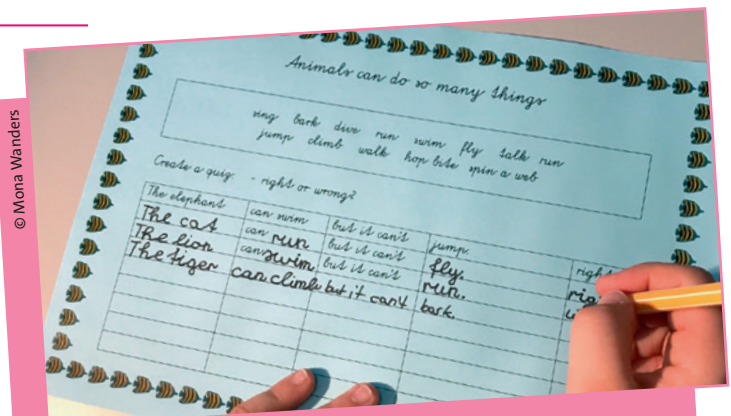 © Mona Wanders
Animals can do so many things
sing bark dive run swim fly talk run
jump climb walk hop bite spin a web
Create a quiz: - right or wrong?
The elephant can swim but it can't jump. right
The cat can run but it can't fly.
The lion can swim, but it can't run.
The tiger can climb but it can't bark.